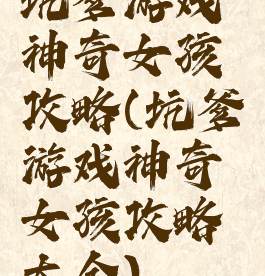 坑爹游戏
神奇女孩
攻略(坑爹
游戏神奇
女孩攻略
大全)